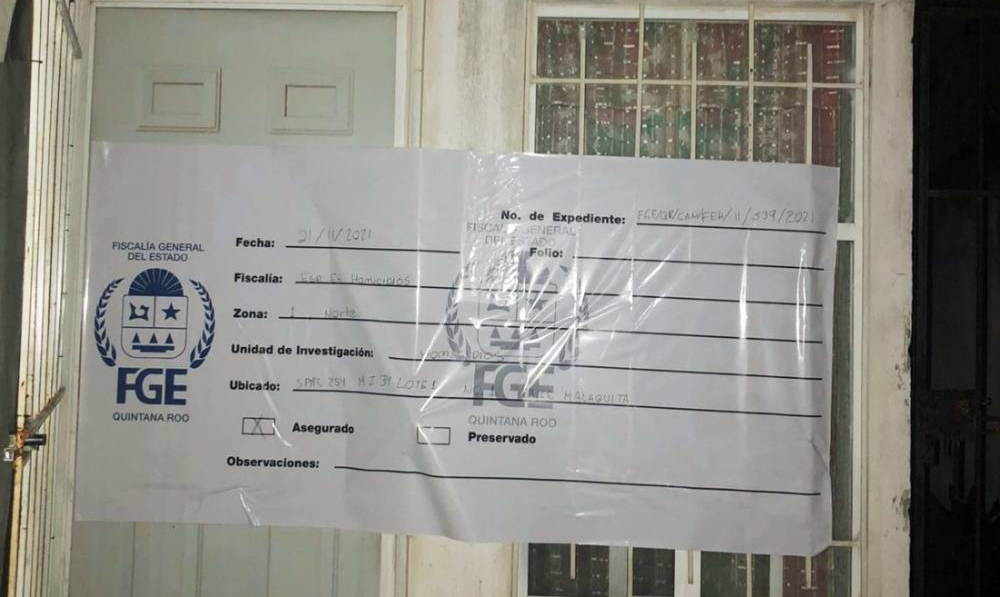 No. de Expediente: FGE/QR/CAN/FEH/11/539/2021
FISCALÍA GENERAL
DEL ESTADO
Fecha: 21/11/2021
FISCALÍA GENERAL
DEL ESTADO
Folio:
Fiscalía: Esp En Homicidios
Zona: 1 Norte
Unidad de Investigación: Homicidios
Ubicado: SPMZ 254 MZ 39 LOTE 1 MALAQUITA
FGE
QUINTANA ROO
FGE
QUINTANA ROO
X Asegurado
Preservado
Observaciones: